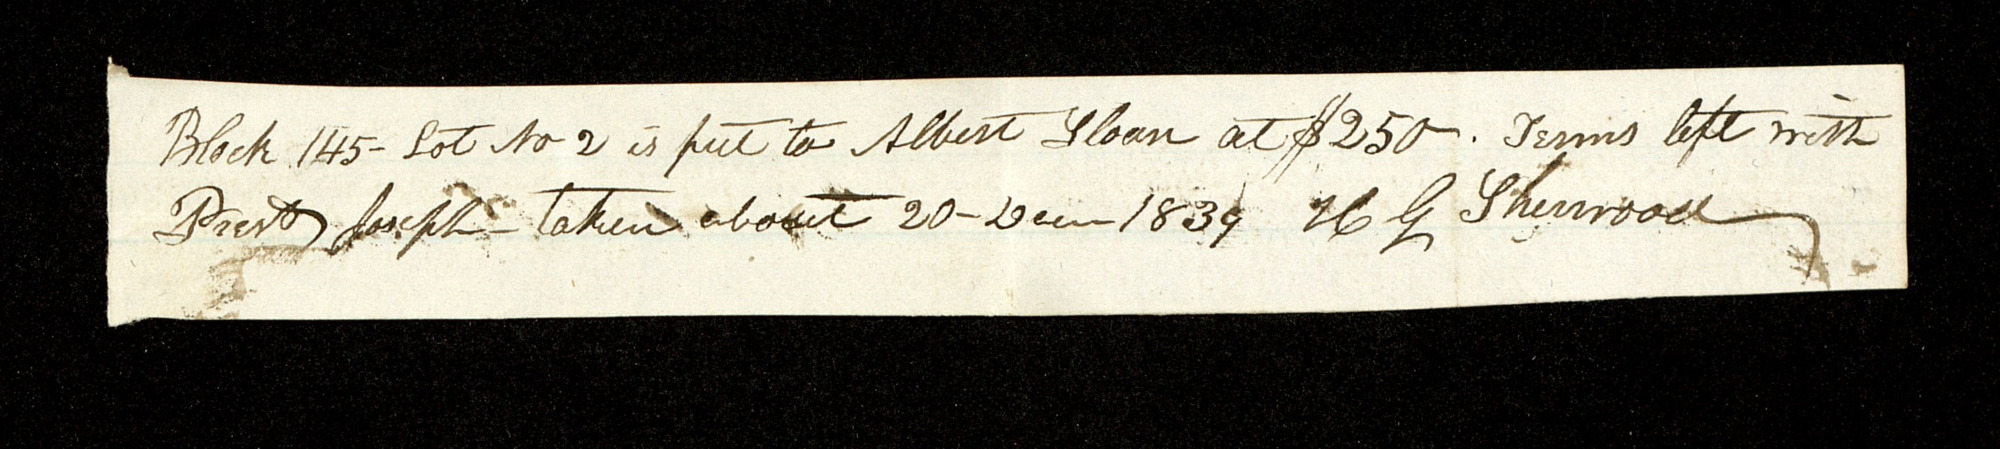 Block 145- Lot No 2 is put to Albert Sloan at $250-. Terms left with
Prest Joseph- taken about 20- Decm 1839 H G Sherwood